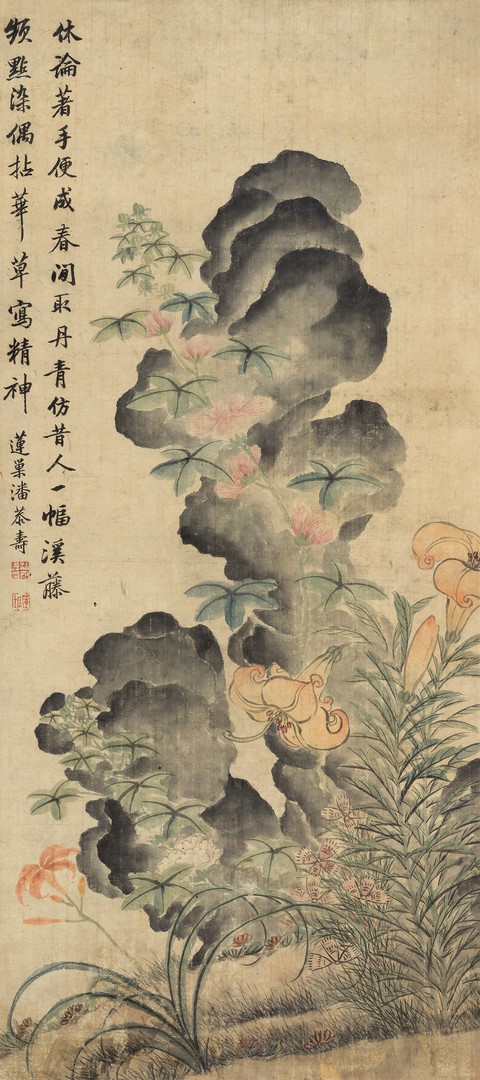 休論著手便成春間取丹青仿昔人一幅溪藤
頻點染偶拈華草寫精神 蓮巢潘恭壽